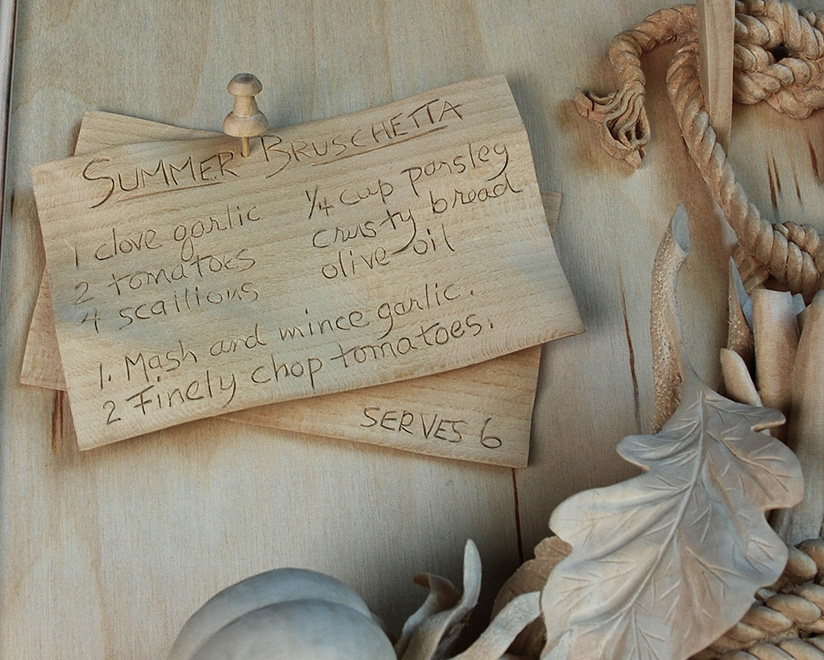 SUMMER BRUSCHETTA
1 clove garlic
2 tomatoes
4 scallions
1/4 cup parsley
crusty bread
olive oil
1. Mash and mince garlic.
2 Finely chop tomatoes.
SERVES 6